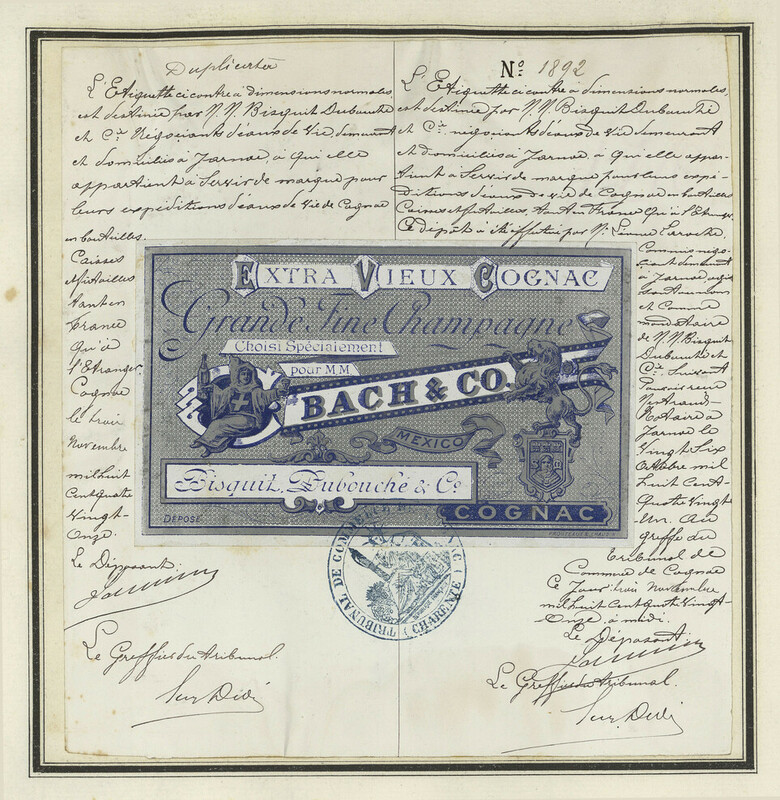 Duplicata
L'Etiquette ci contre à dimensions normales,
est destinée par N. N. Bisquit Dubouché
et Cie Négociants d'eaux de Vie, demeurant
et domiciliés à Jarnac, à Qui elle
appartient à Servir de marque pour
leurs expéditions d'eaux de Vie de Cognac
en bouteilles,
Caisses
et futailles
tant en
France
qu'à
l'Etranger.
Cognac
le trois
Novembre
mil huit
cent quatre
Vingt-
Onze.
Le Déposant
Le Greffier du tribunal.
No 1892
L'Etiquette ci contre à dimensions normales,
est destinée par N. N. Bisquit Dubouché
et Cie négociants d'eaux de Vie demeurant
et domiciliés à Jarnac, à Qui elle appar-
tient à Servir de marque pour leurs expé-
ditions d'eaux de vie de Cognac en bouteilles
Caisses et futailles, tant en France Qu'à l'Etranger.
Ce dépôt à été effectué par Mr Laroche
Commis négo-
ciant demeurant
à Jarnac
et Comme
mandataire
de N. N. Bisquit
Dubouché et
Cie Suivant
Pouvoir reçu
Notaire à
Jarnac le
Vingt Six
Octobre mil
huit Cent
Quatre Vingt
Un. Au
greffe du
tribunal de
Commerce de Cognac
Ce Jour trois Novembre
mil huit cent quatre Vingt-
Onze, à midi.
Le Déposant
Le Greffier du tribunal
EXTRA VIEUX COGNAC
Grande Fine Champagne
Choisi Spécialement
pour M.M
BACH & CO.
MEXICO
Bisquit, Dubouché & Co
COGNAC
DÉPOSÉ
TRIBUNAL DE COMMERCE
(CHARENTE)